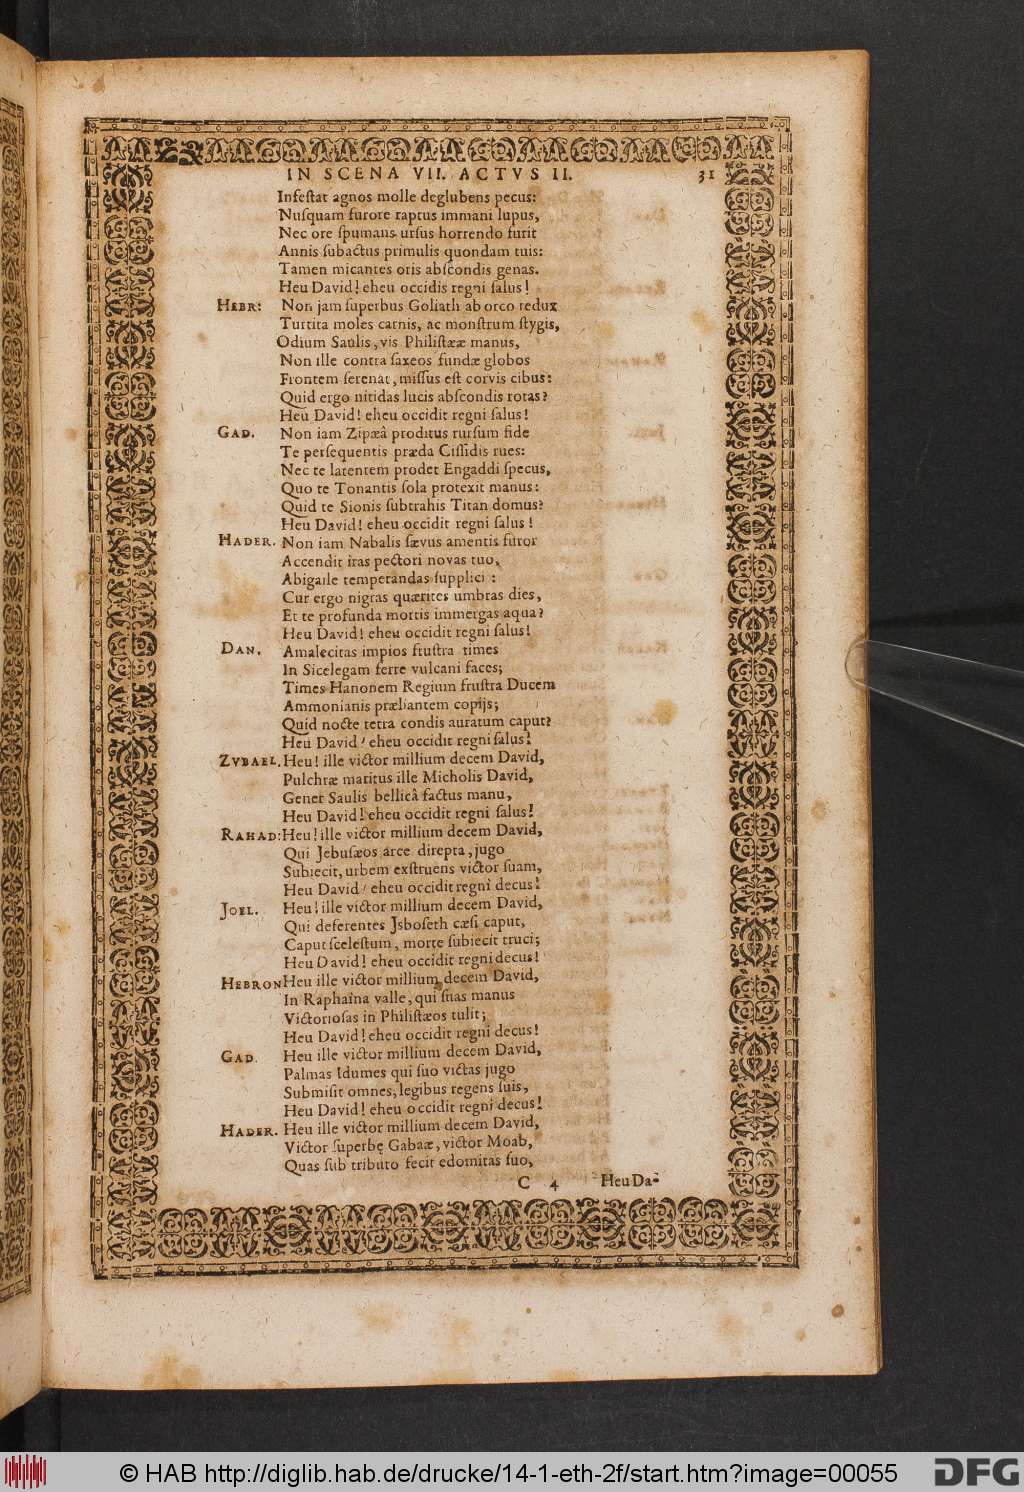 IN SCENA VII. ACTVS II. 31
Infestat agnos molle deglubens pecus:
Nusquam furore raptus immani lupus,
Nec ore spumans ursus horrendo furit
Annis subactus primulis quondam tuis:
Tamen micantes oris abscondis genas.
Heu David! eheu occidis regni salus!
HEBR: Non jam superbus Goliath ab orco redux
Turrita moles carnis, ac monstrum stygis,
Odium Saulis, vis Philistææ manus,
Non ille contra saxeos fundæ globos
Frontem serenat, missus est corvis cibus:
Quid ergo nitidas lucis abscondis rotas?
Heu David! eheu occidit regni salus!
GAD. Non iam Zipæâ proditus rursum fide
Te persequentis præda Cissidis rues:
Nec te latentem prodet Engaddi specus,
Quo te Tonantis sola protexit manus:
Quid te Sionis subtrahis Titan domus?
Heu David! eheu occidit regni salus!
HADER. Non iam Nabalis sævus amentis furor
Accendit iras pectori novas tuo,
Abigaile temperandas supplici:
Cur ergo nigras quærites umbras dies,
Et te profunda mortis immergas aqua?
Heu David! eheu occidit regni salus!
DAN. Amalecitas impios frustra times
In Sicelegam ferre vulcani faces;
Times Hanonem Regium frustra Ducem
Ammonianis præliantem copijs;
Quid nocte tetra condis auratum caput?
Heu David! eheu occidit regni salus!
ZVBAEL. Heu! ille victor millium decem David,
Pulchræ maritus ille Micholis David,
Gener Saulis bellicâ factus manu,
Heu David! eheu occidit regni salus!
RAHAD: Heu! ille victor millium decem David,
Qui Jebusæos arce direpta, jugo
Subiecit, urbem exstruens victor suam,
Heu David! eheu occidit regni decus!
JOEL. Heu! ille victor millium decem David,
Qui deferentes Jsboseth cæsi caput,
Caput scelestum, morte subiecit truci;
Heu David! eheu occidit regni decus!
HEBRON Heu ille victor millium decem David,
In Raphaina valle, qui suas manus
Victoriosas in Philistæos tulit;
Heu David! eheu occidit regni decus!
GAD. Heu ille victor millium decem David,
Palmas Idumes qui suo victas jugo
Submisit omnes, legibus regens suis,
Heu David! eheu occidit regni decus!
HADER. Heu ille victor millium decem David,
Victor superbę Gabaæ, victor Moab,
Quas sub tributo fecit edomitas suo,
C 4 Heu Da-
© HAB http://diglib.hab.de/drucke/14-1-eth-2f/start.htm?image=00055 DFG